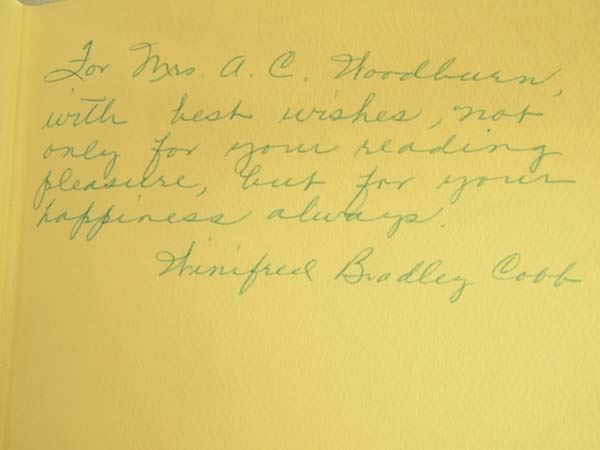 For Mrs. A. C. Woodburn,
with best wishes, not
only for your reading
pleasure, but for your
happiness always.
Winifred Bradley Cobb